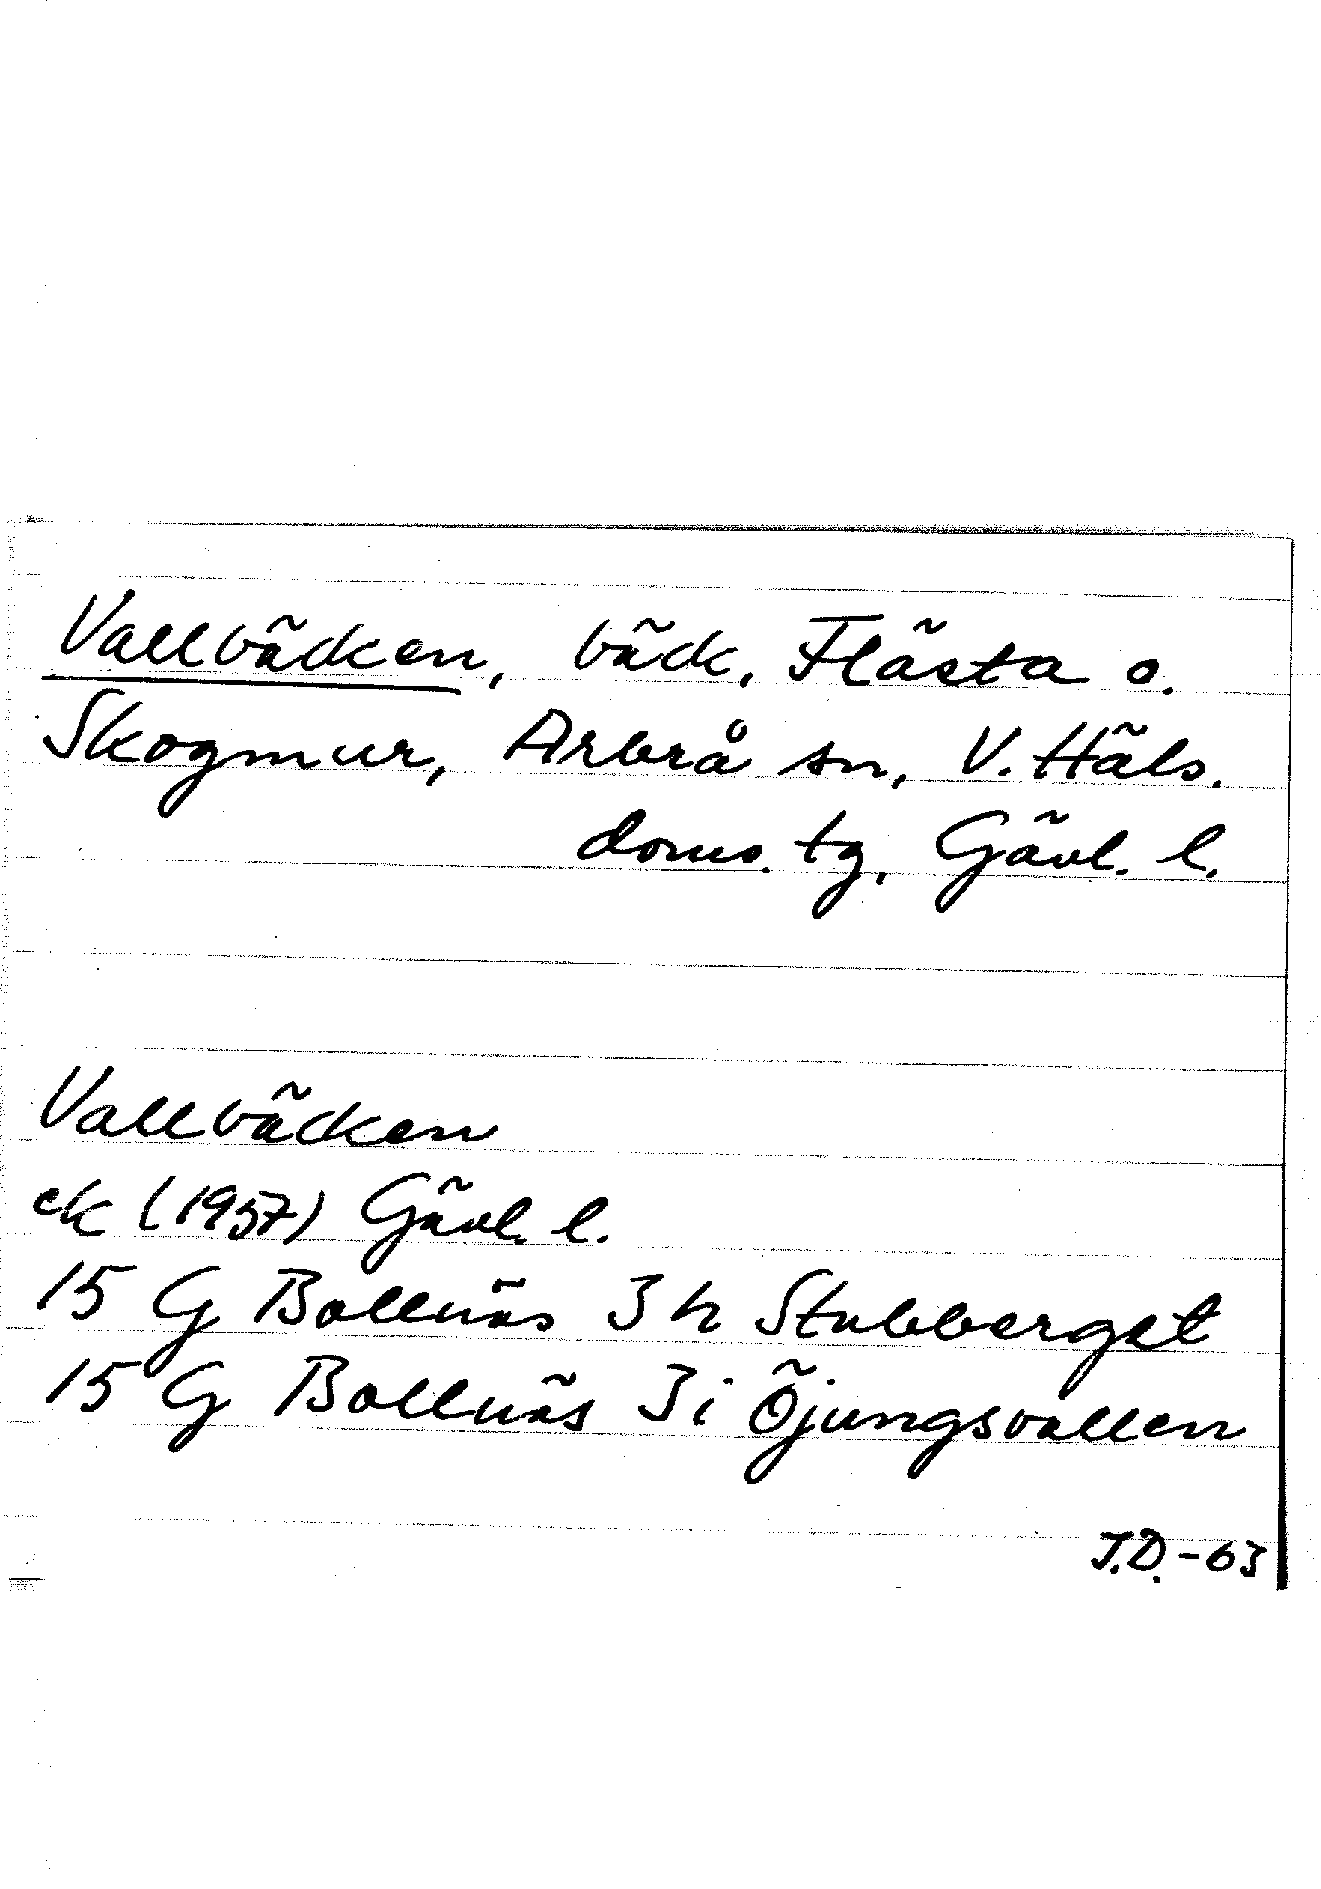 Vallbäcken, bäck, Flästa o.
Skogmur, Arbrå sn, V. Häls.
doms. tg, Gävl. l.
Vallbäcken
ek (1957) Gävl. l.
15 G Bollnäs 3 h Stubberget
15 G Bollnäs 3 i Öjungsvallen
J.D. -63